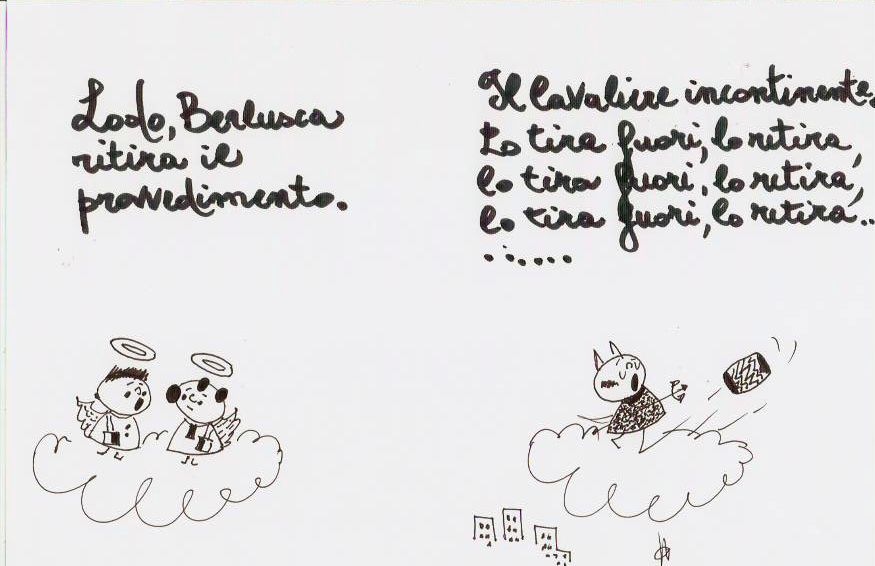 Lodo, Berlusca
ritira il
provvedimento.
Il Cavaliere incontinente.
Lo tira fuori, lo ritira,
lo tira fuori, lo ritira,
lo tira fuori, lo ritira...
......